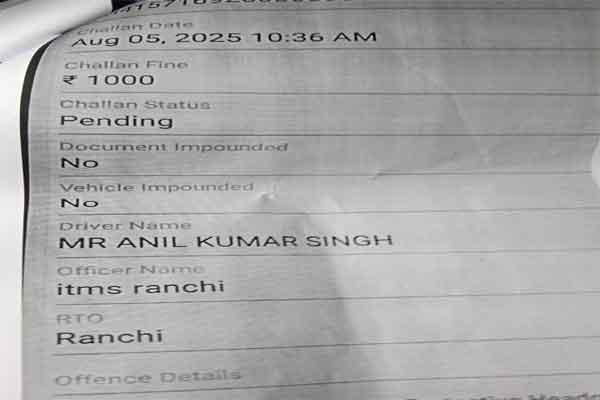 Challan Date
Aug 05, 2025 10:36 AM
Challan Fine
₹ 1000
Challan Status
Pending
Document Impounded
No
Vehicle Impounded
No
Driver Name
MR ANIL KUMAR SINGH
Officer Name
itms ranchi
RTO
Ranchi
Offence Details